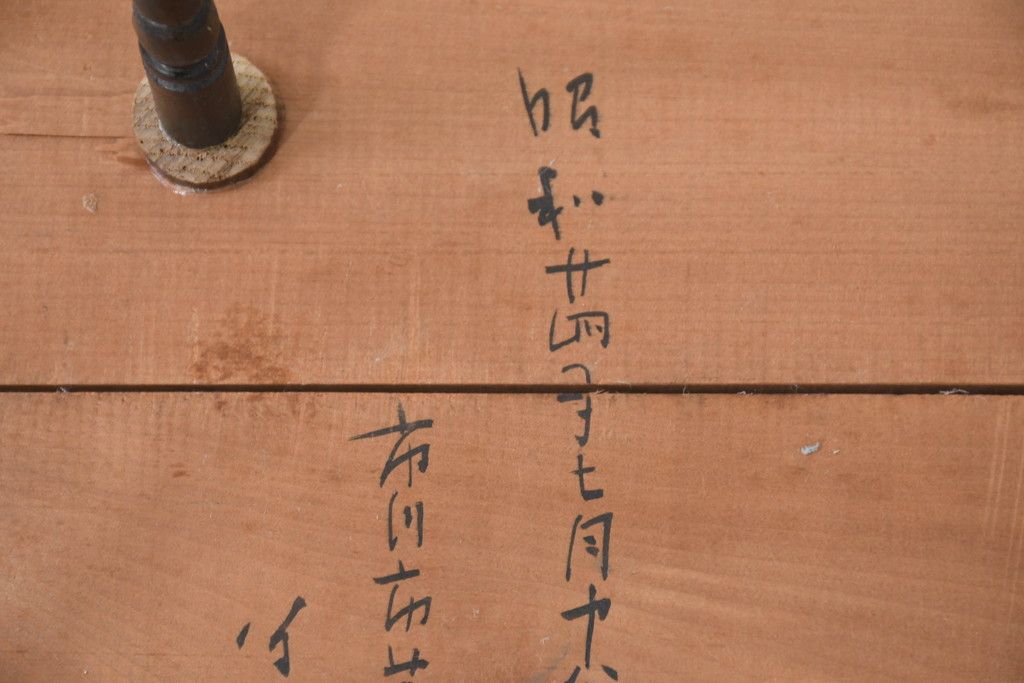 昭和廿四年七月十八
市川市